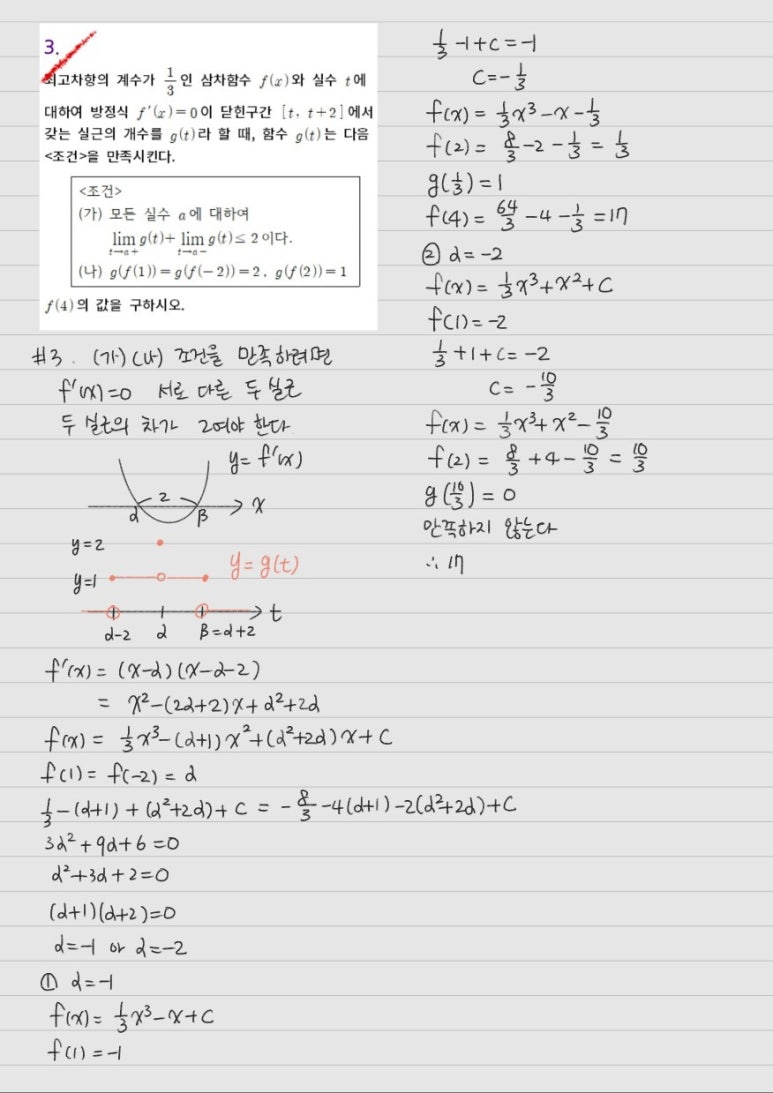 3.
최고차항의 계수가 1/3인 삼차함수 f(x)와 실수 t에
대하여 방정식 f′(x)=0이 닫힌구간 [t, t+2]에서
갖는 실근의 개수를 g(t)라 할 때, 함수 g(t)는 다음
<조건>을 만족시킨다.
<조건>
(가) 모든 실수 a에 대하여
lim t→a+ g(t)+ lim t→a− g(t)≤2이다.
(나) g(f(1))=g(f(−2))=2, g(f(2))=1
f(4)의 값을 구하시오.
#3. (가)(나) 조건을 만족하려면
f′(x)=0 서로 다른 두 실근
두 실근의 차가 2여야 한다
y=f′(x)
2
α β x
y=2
y=1
y=g(t)
t
α-2 α β=α+2
f′(x)=(x-α)(x-α-2)
= x²-(2α+2)x+α²+2α
f(x)= 1/3x³-(α+1)x²+(α²+2α)x+C
f(1)=f(-2)=α
1/3-(α+1)+(α²+2α)+C = -8/3-4(α+1)-2(α²+2α)+C
3α²+9α+6=0
α²+3α+2=0
(α+1)(α+2)=0
α=-1 or α=-2
① α=-1
f(x)= 1/3x³-x+C
f(1)=-1
1/3-1+C=-1
C=-1/3
f(x)= 1/3x³-x-1/3
f(2)= 8/3-2-1/3=1/3
g(1/3)=1
f(4)= 64/3-4-1/3=17
② α=-2
f(x)= 1/3x³+x²+C
f(1)=-2
1/3+1+C=-2
C= -10/3
f(x)= 1/3x³+x²-10/3
f(2)= 8/3+4-10/3=10/3
g(10/3)=0
만족하지 않는다
∴ 17